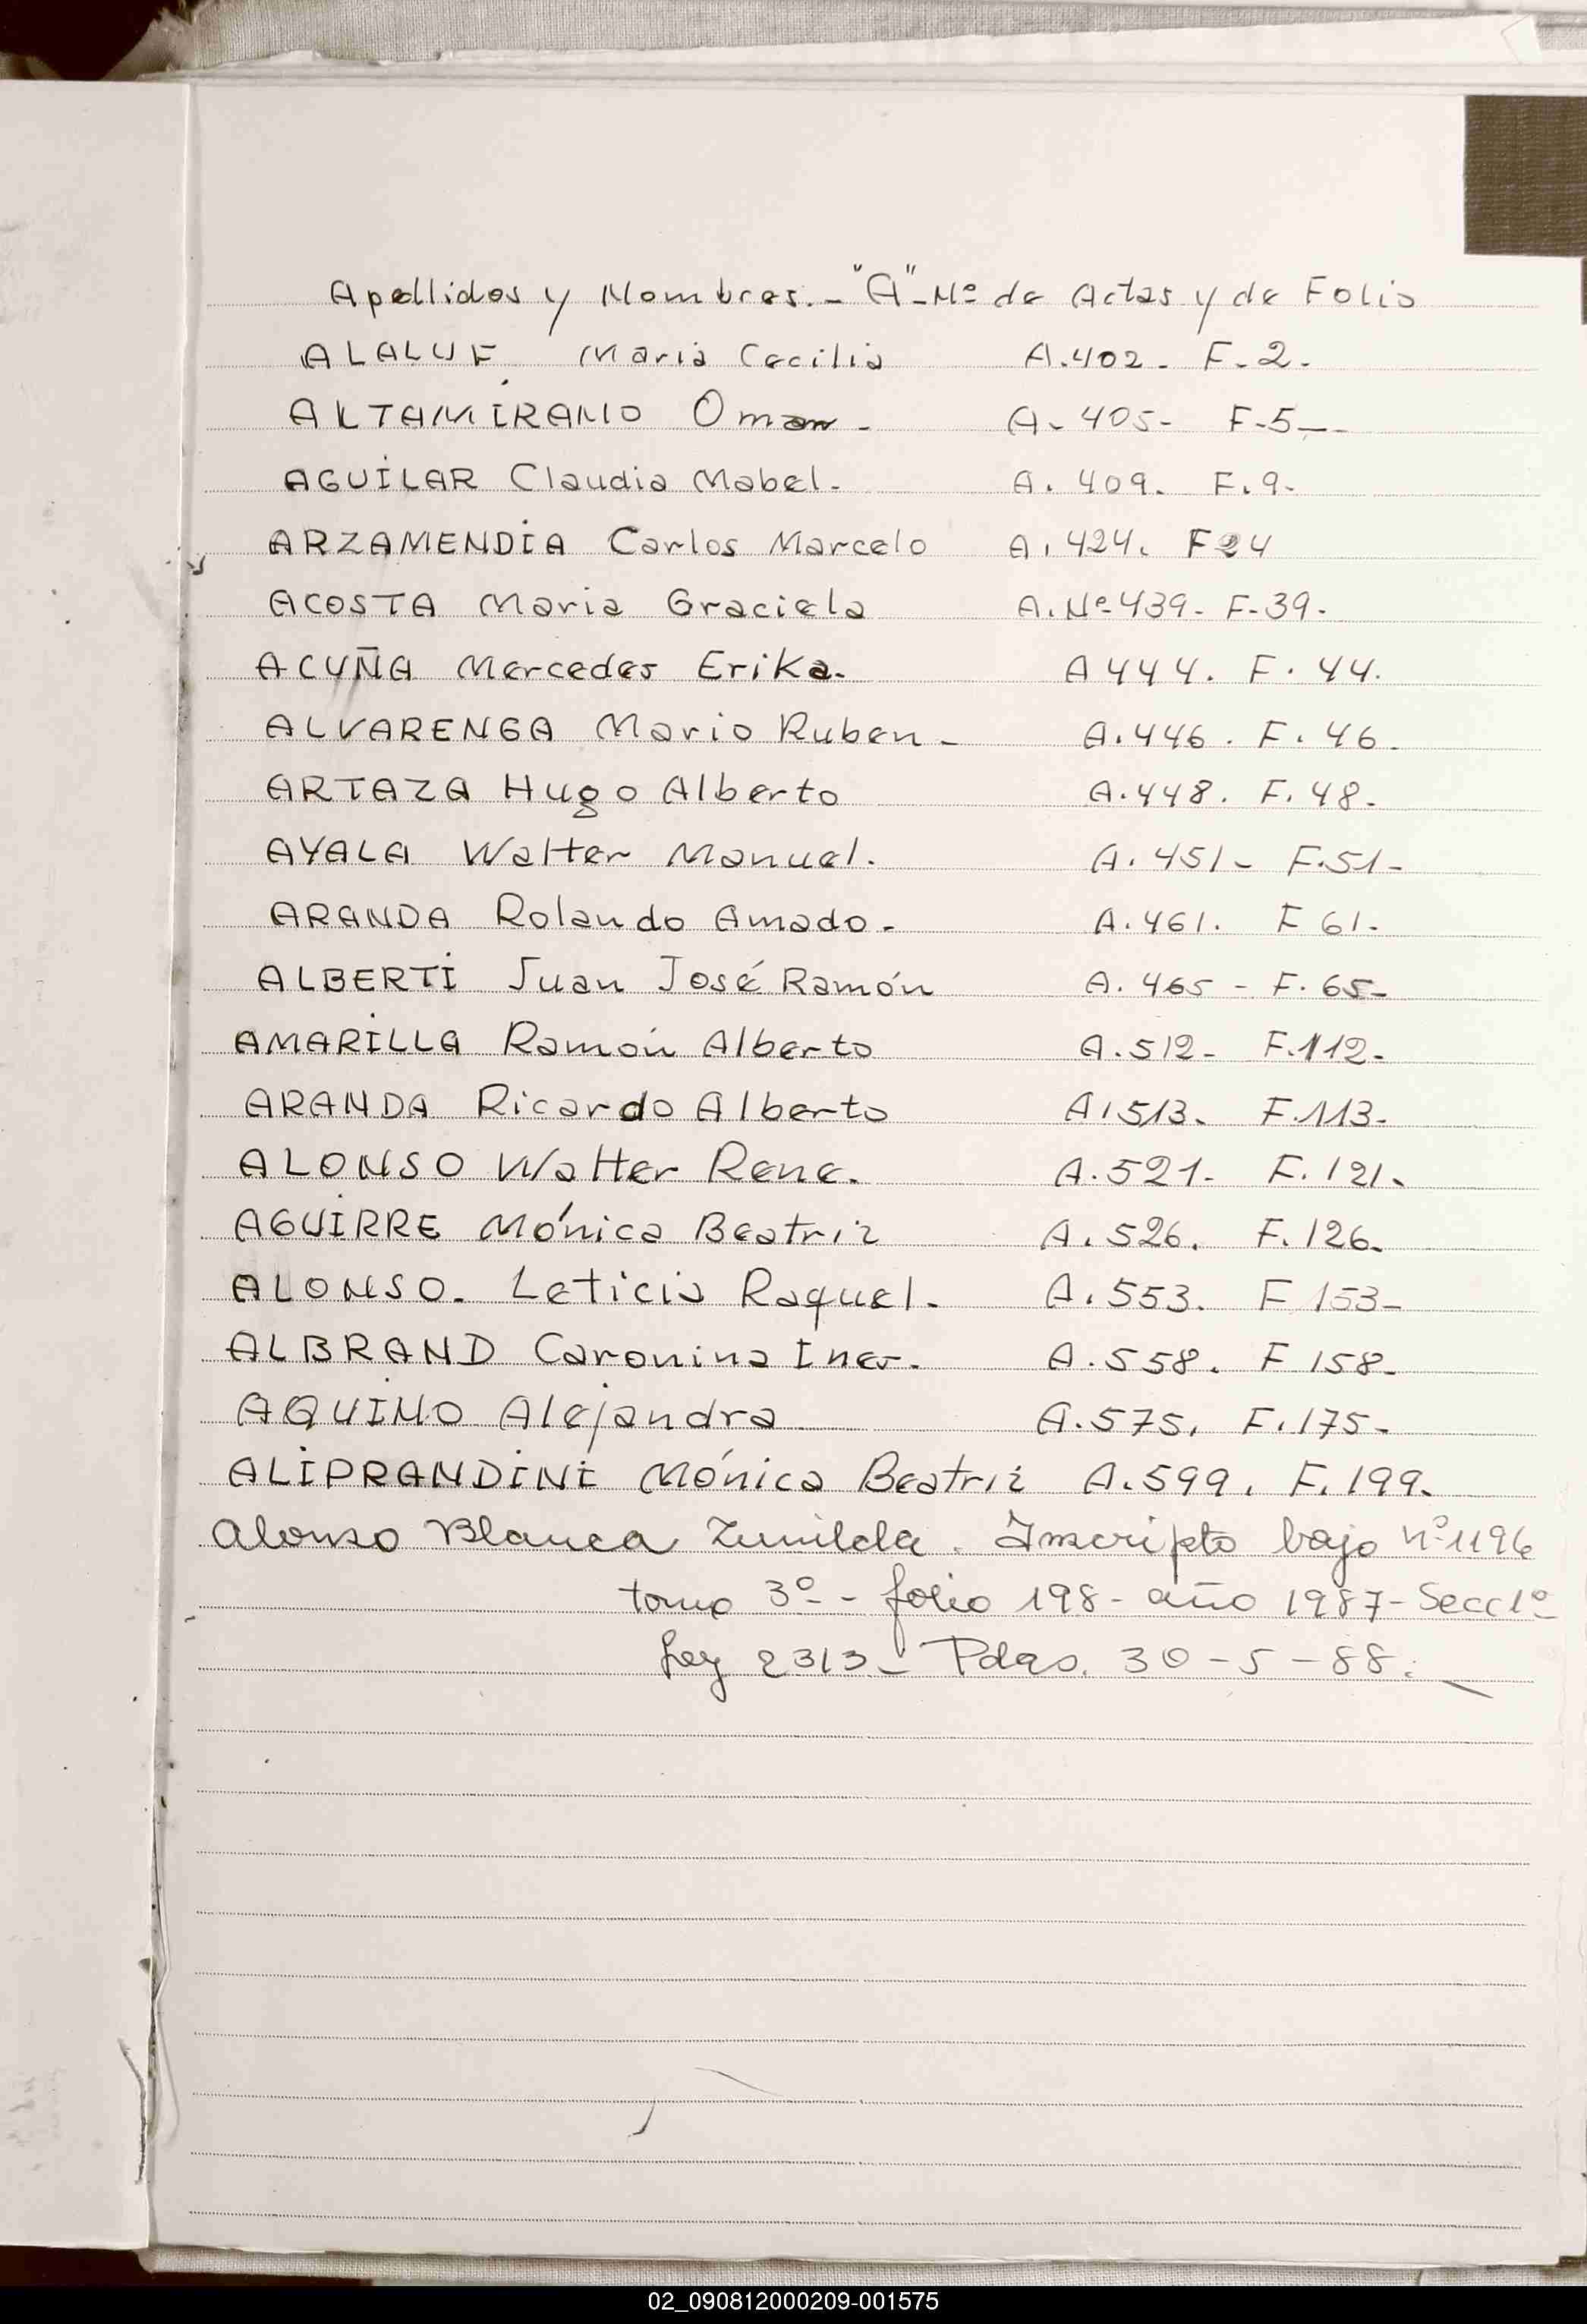 Apellidos y Nombres.- "A"-Nº de Actas y de Folio
ALALUF Maria Cecilia A.402. F-2.
ALTAMIRANO Omar - A- 405- F-5--
AGUILAR Claudia Mabel. A. 409. F.9-
ARZAMENDIA Carlos Marcelo A. 424. F 24
ACOSTA Maria Graciela A.Nº-439- F-39-
ACUÑA Mercedes Erika. A 444. F. 44.
ALVARENGA Mario Ruben - A.446. F. 46-
ARTAZA Hugo Alberto A.448. F. 48-
AYALA Walter Manuel. A. 451- F.51-
ARANDA Rolando Amado- A.461. F 61-
ALBERTI Juan José Ramón A. 465 - F. 65-
AMARILLA Ramón Alberto A.512- F.112-
ARANDA Ricardo Alberto A.513. F.113-
ALONSO Walter Rene. A.521- F.121.
AGUIRRE Mónica Beatriz A. 526. F. 126.
ALONSO. Leticia Raquel. A. 553. F 153-
ALBRAND Caronina Ines. A.558. F 158-
AQUINO Alejandra A.575. F.175-
ALIPRANDINI Mónica Beatriz A.599. F.199.
Alonso Blanca Zunilda. Inscripto bajo nº 1196
tomo 3º - folio 198- año 1987- Secc 1º
Ley 2313- Pdas. 30-5-88.
02_090812000209-001575